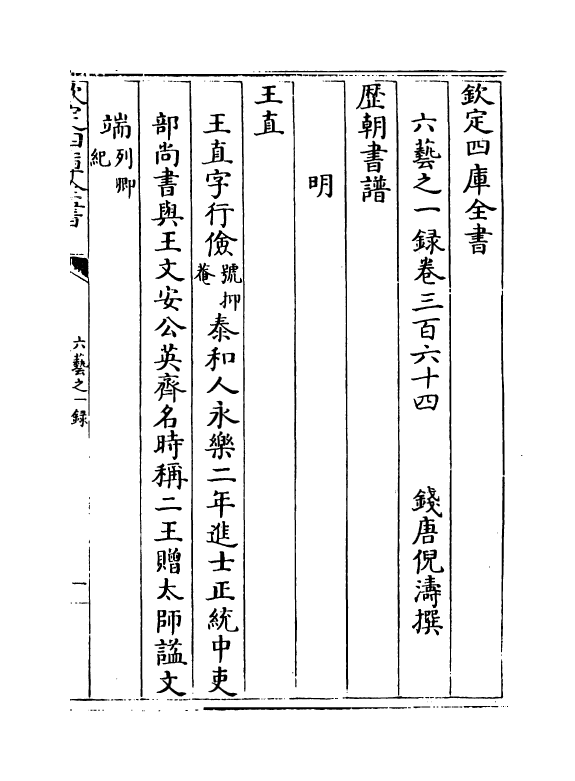 欽定四庫全書
六藝之一録卷三百六十四　錢唐倪濤撰
歴朝書譜
明
王直
王直字行儉號抑菴泰和人永樂二年進士正統中吏
部尚書與王文安公英齊名時稱二王贈太師諡文
端列卿紀
欽定四庫全書
六藝之一録
一